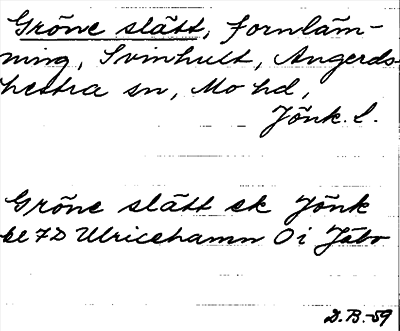 Gröne slätt, fornläm-
ning, Svinhult, Angerds-
hestra sn, Mo hd,
Jönk. l.
Gröne slätt ek Jönk
bl 7D Ulricehamn 0 i Jäbo
D.B.-59